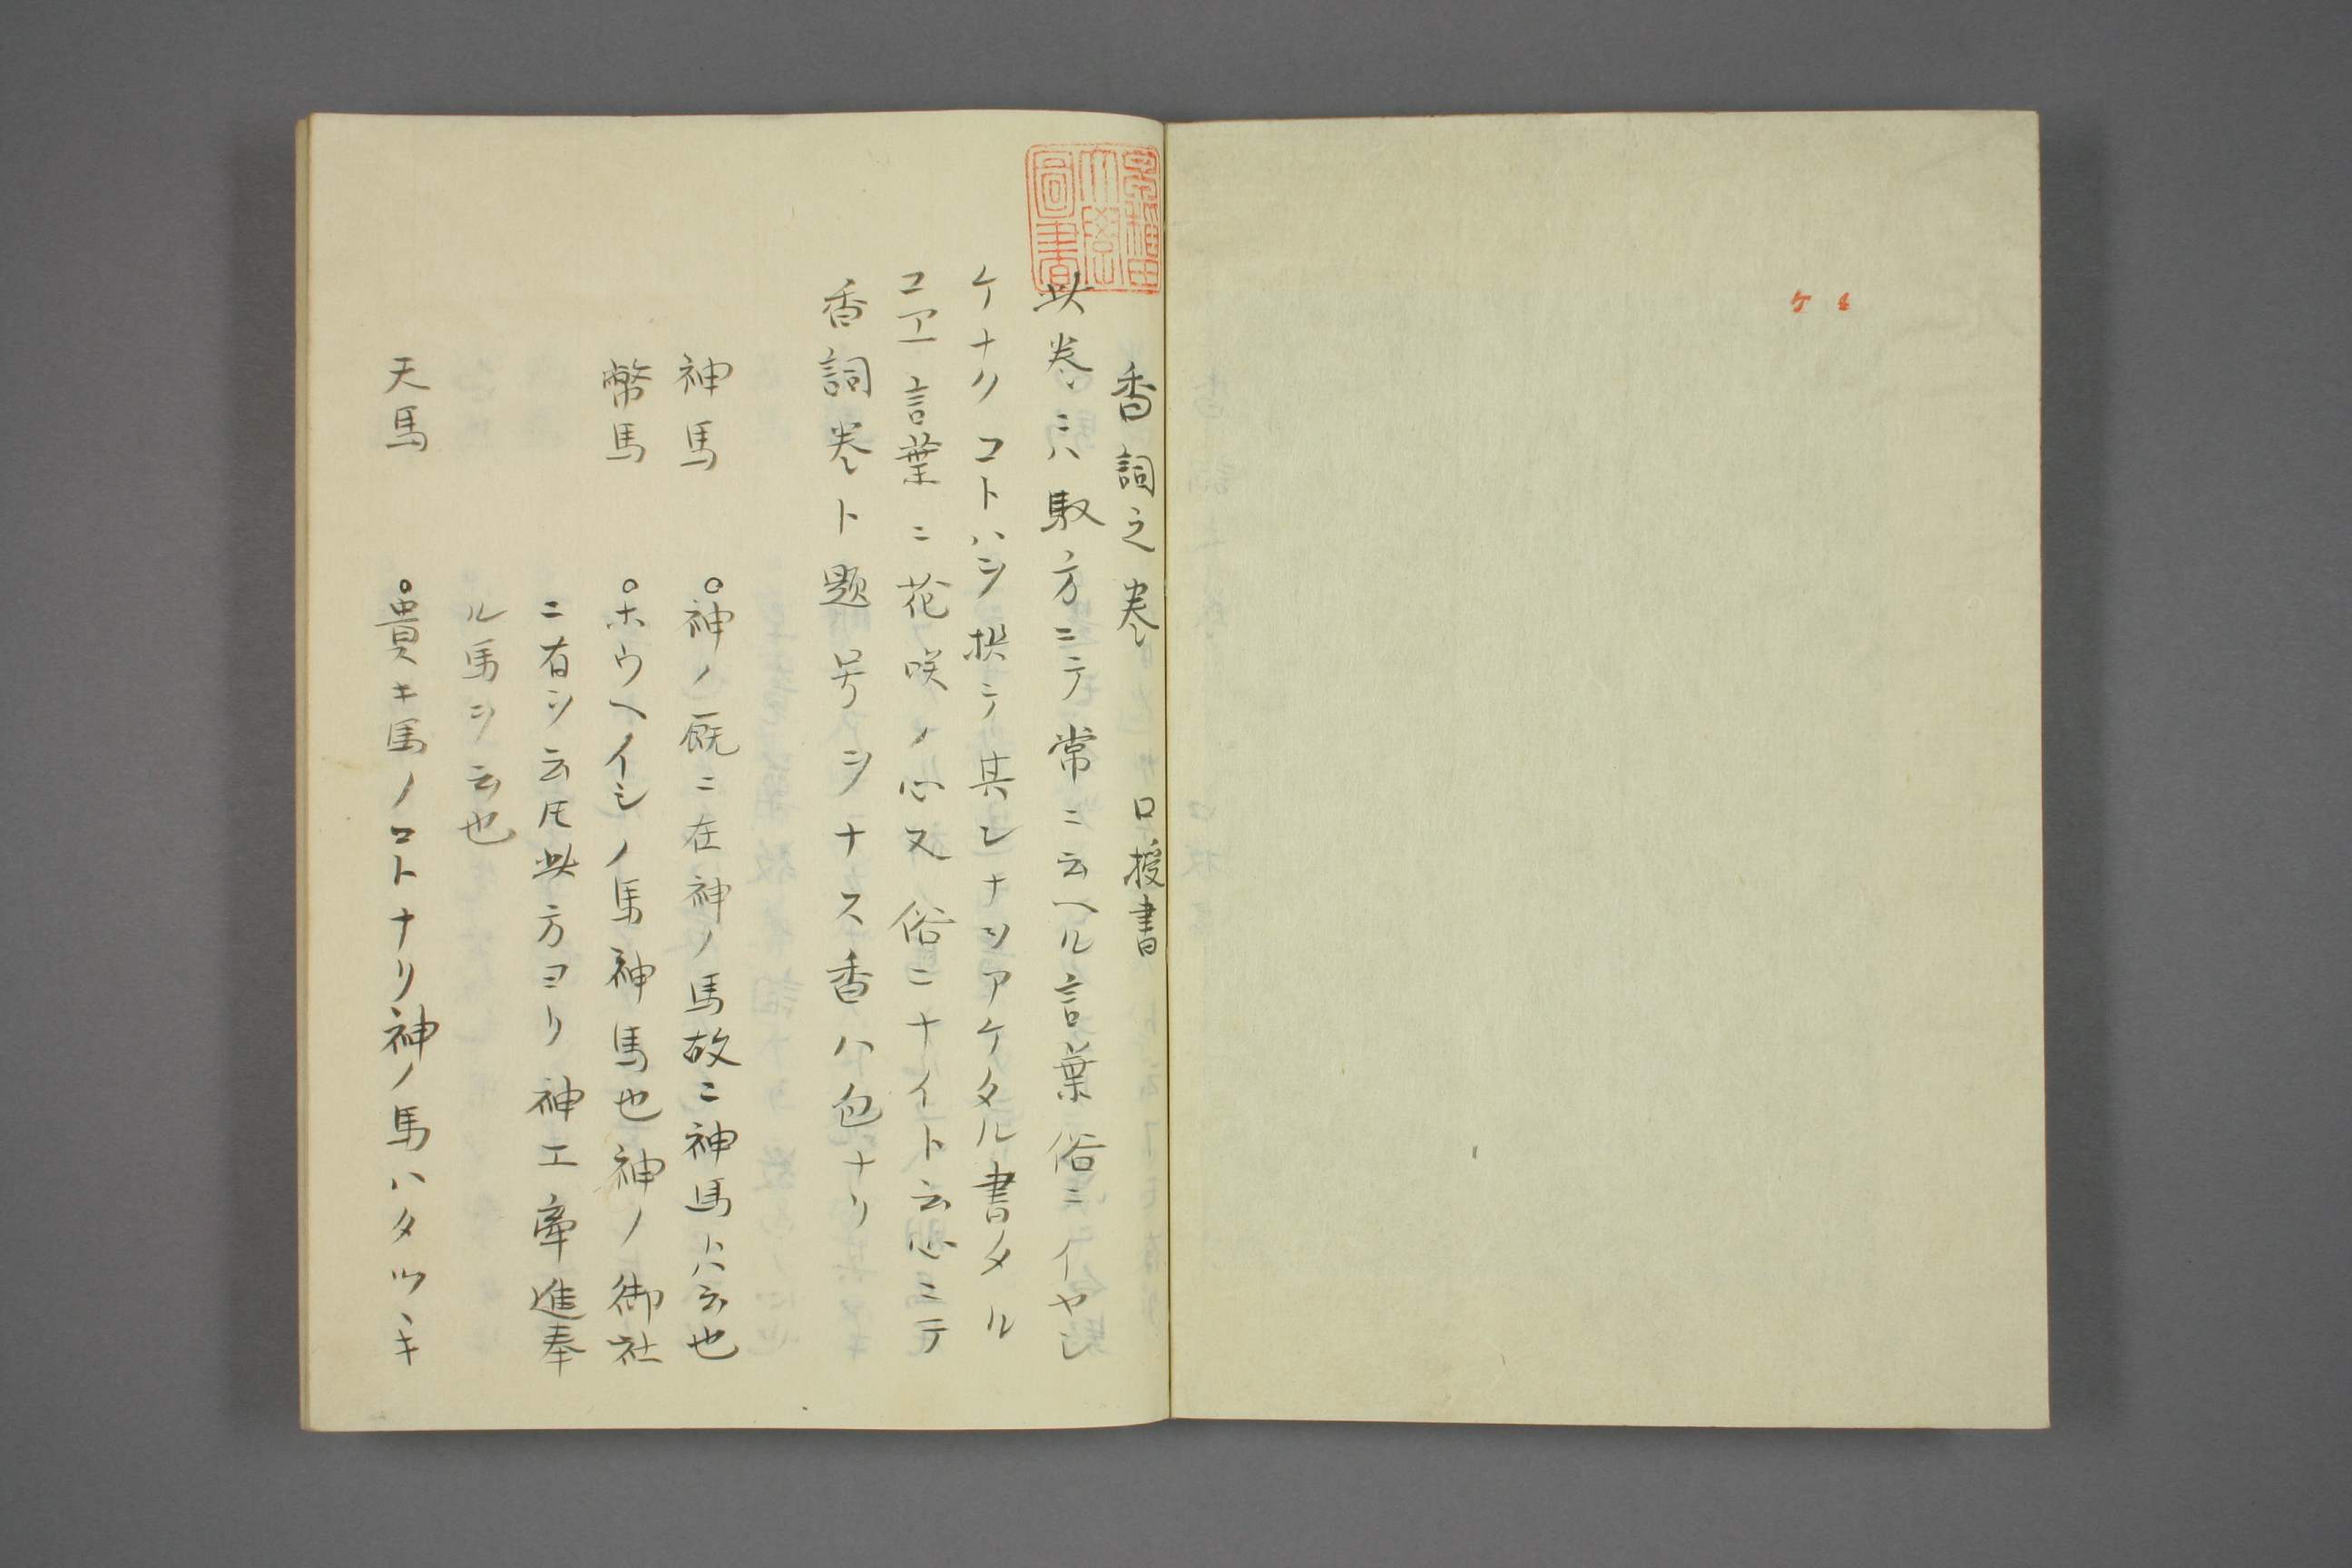 香詞之巻 口授書
此巻ニハ馭方ニテ常ニ云ヘル言葉俗ニイヤシ
ケナクコトハヲ撰テ其シナヲアケタル書タル
コヱ言葉ニ花咲ノ心又俗ニナイト云心ニテ
香詞巻ト題号ヲナス香ハ色ナリ
神馬 ○神ノ厩ニ在神ノ馬故ニ神馬トハ云也
幣馬 ○ホウヘイシノ馬神馬也神ノ御社
ニ有ヲ云𪜈此方ヨリ神エ牽進奉
ル馬ヲ云也
天馬 ○貴キ馬ノコトナリ神ノ馬ハタツヽキ
早稲田大學圖書
ケ 4